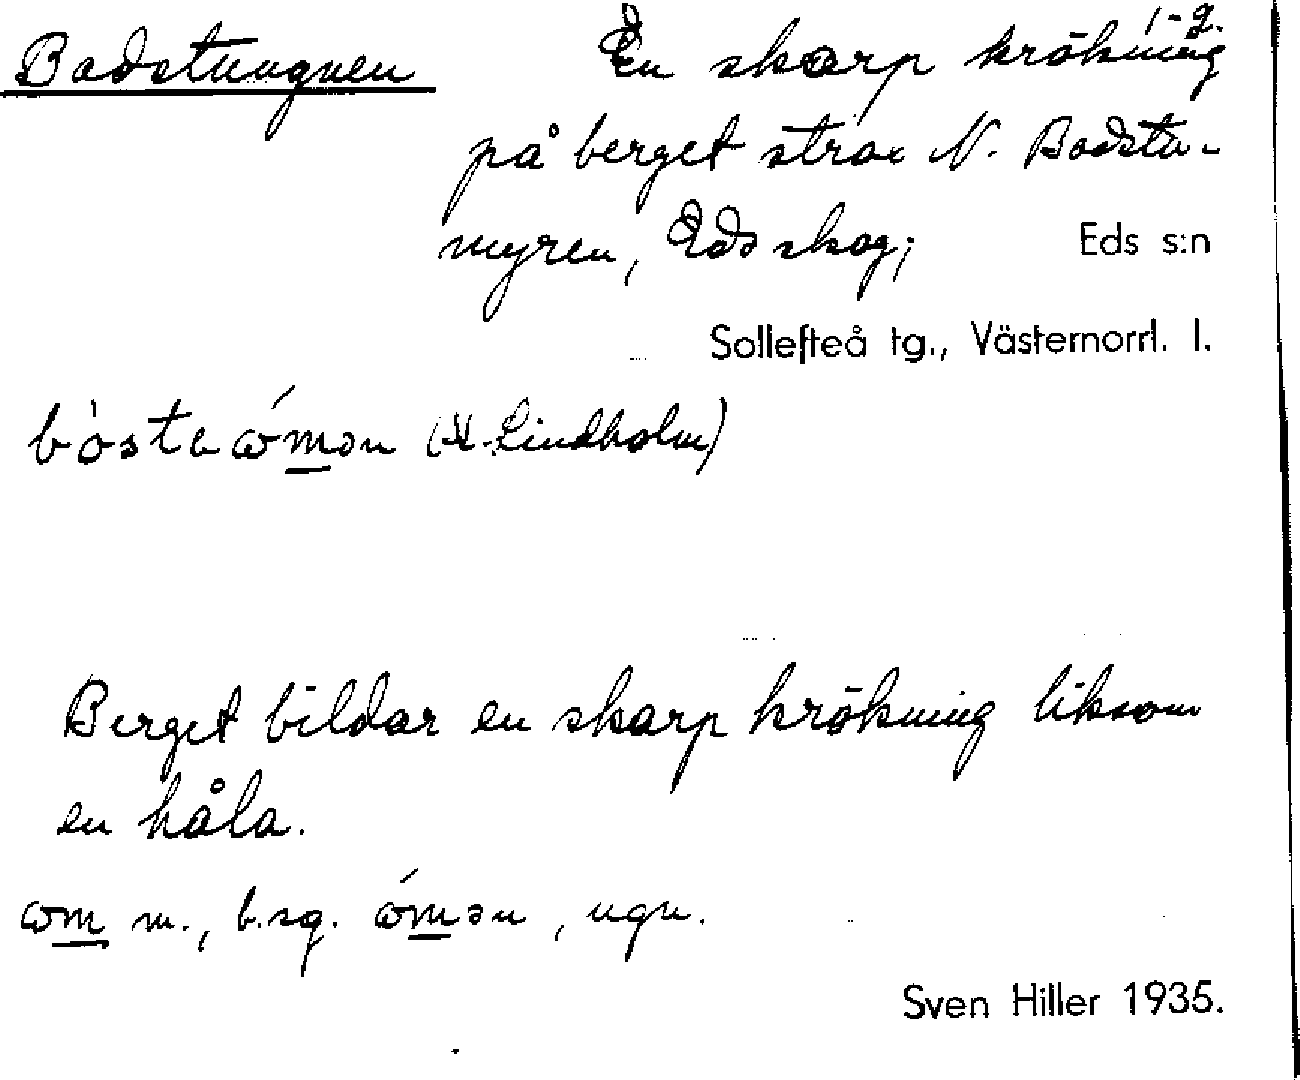 1-2.
Badstuugnen En skarp krökning
på berget strax N. Badstu-
myren, Eds skog; Eds s:n
Sollefteå tg., Västernorrl. l.
(H. Lindholm)
Berget bildar en skarp krökning liksom
en håla.
ωm m., b.sg. ώmən, ugn.
Sven Hiller 1935.